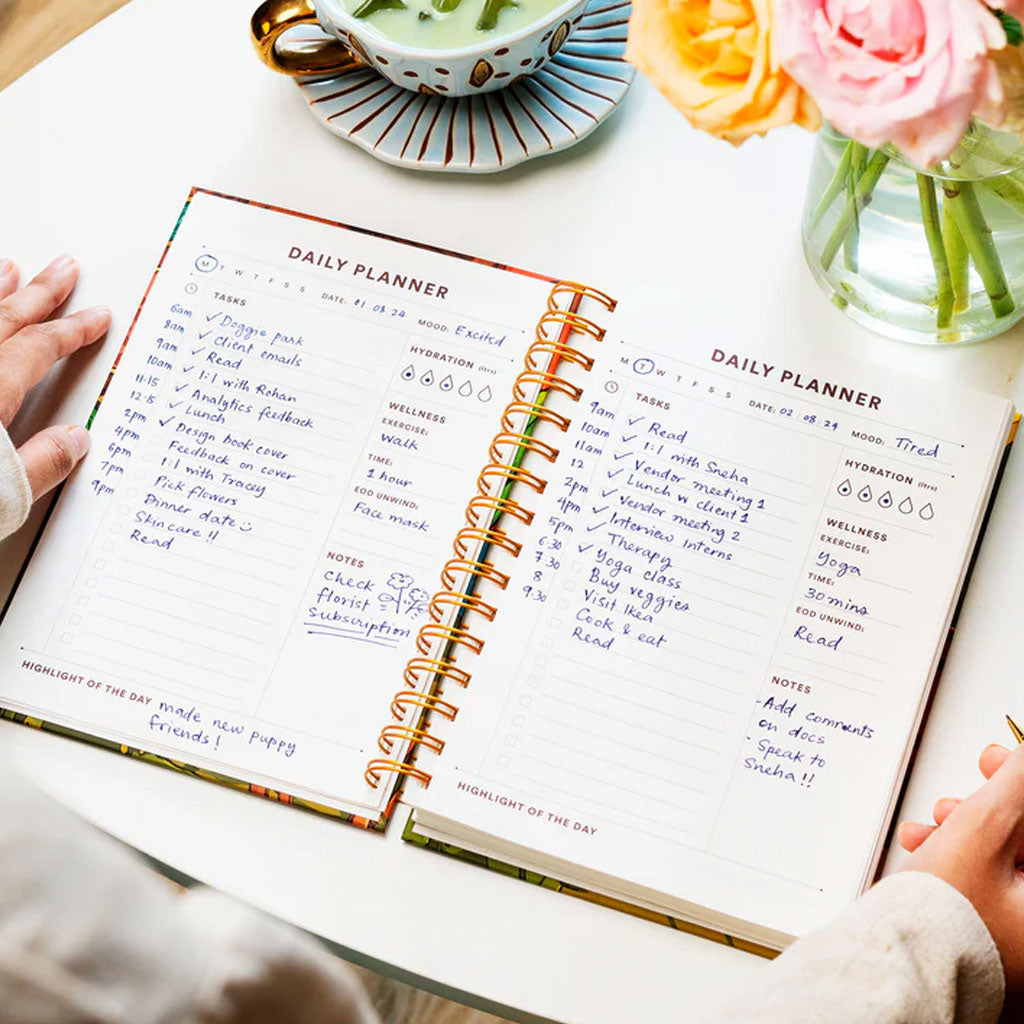 DAILY PLANNER
M T W T F S S DATE: 01 08 24
MOOD: Excited
TASKS
6am ✓ Doggie park
8am ✓ Client emails
9am ✓ Read
10am ✓ 1:1 with Rohan
11.15 ✓ Analytics feedback
12.15 ✓ Lunch
2pm ✓ Design book cover
4pm Feedback on cover
6pm 1:1 with Tracey
7pm Pick flowers
9pm Dinner date
Skin care !!
Read
HYDRATION (ltrs)
WELLNESS
EXERCISE:
Walk
TIME:
1 hour
EOD UNWIND:
Face mask
NOTES
Check
florist =
subscription
HIGHLIGHT OF THE DAY made new puppy
friends!
DAILY PLANNER
M T W T F S S DATE: 02 08 24
MOOD: Tired
TASKS
9am ✓ Read
10am ✓ 1:1 with Sneha
11am ✓ Vendor meeting 1
12 ✓ Lunch w client 1
2pm ✓ Vendor meeting 2
4pm ✓ Interview Interns
5pm ✓ Therapy
6.30 ✓ Yoga class
7.30 Buy veggies
8 Visit Ikea
9.30 Cook & eat
Read
HYDRATION (ltrs)
WELLNESS
EXERCISE:
Yoga
TIME:
30 mins
EOD UNWIND:
Read
NOTES
- Add comments
on docs
- Speak to
Sneha !!
HIGHLIGHT OF THE DAY